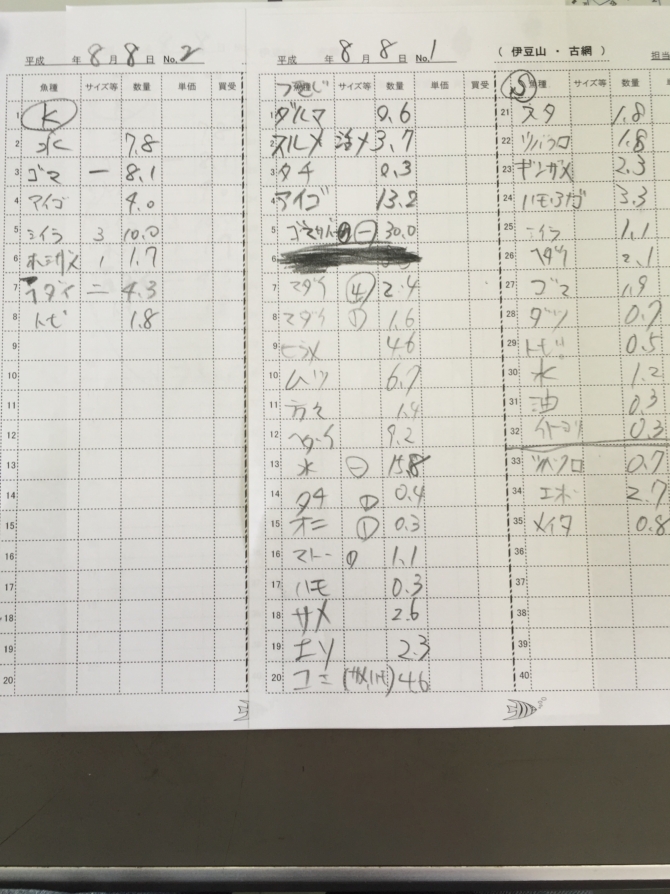 平成 年 8 月 8 日 No. 2
魚種 サイズ等 数量 単価 買受
1 K
2 水 7.8
3 ゴマ 一 8.1
4 アイゴ 4.0
5 シイラ 3 10.0
6 ホシザメ 1 1.7
7 ヘダイ 二 4.3
8 トビ 1.8
9
10
11
12
13
14
15
16
17
18
19
20
平成 年 8 月 8 日 No. 1
サイズ等 数量 単価 買受
1 ダルマ 0.6
2 スルメ 活〆 3.7
3 タチ 0.3
4 アイゴ 13.2
5 ゴマサバ 一 30.0
6
7 マダイ ④ 2.4
8 マダイ ① 1.6
9 ヒラメ 4.6
10 ムツ 6.7
11 1.4
12 ヘダイ 9.2
13 水 ㊀ 15.8
14 タチ ① 0.4
15 オニ ① 0.3
16 マトー ① 1.1
17 ハモ 0.3
18 サメ 2.6
19 エソ 2.3
20 ゴミ 46
( 伊豆山 ・ 古網 ) 担当
S 魚種 サイズ等 数量
21 スタ 1.8
22 ツバクロ 1.8
23 ギンガメ 2.3
24 3.3
25 シイラ 1.1
26 ヘダイ 2.1
27 ゴマ 1.9
28 ダツ 0.7
29 トビ 0.5
30 水 1.2
31 油 0.3
32 0.3
33 ツバクロ 0.7
34 エボ 2.7
35 メイタ 0.8
36
37
38
39
40